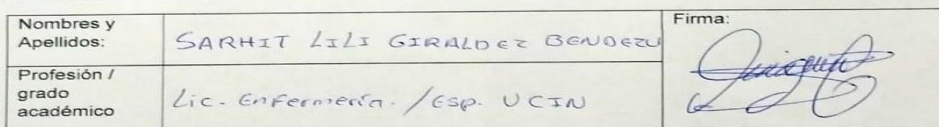 Nombres y
Apellidos:
SARHIT LILI GIRALDEZ BENDEZU
Firma:
Profesión /
grado
académico
Lic. Enfermería. / Esp. UCIN